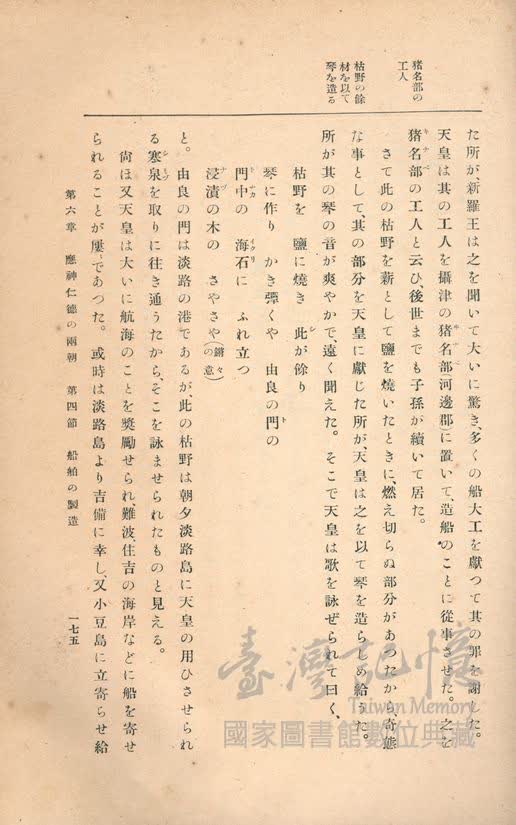 猪名部の
工人
枯野の餘
材を以て
琴を造る
た所が、新羅王は之を聞いて大いに驚き、多くの船大工を獻つて其の罪を謝した。
天皇は其の工人を攝津の猪名部河邊郡に置いて、造船のことに從事させた。之を
猪名部の工人と云ひ、後世までも子孫が續いて居た。
さて此の枯野を薪として鹽を燒いたときに、燃え切らぬ部分があつたから奇態
な事として、其の部分を天皇に獻じた所が、天皇は之を以て琴を造らしめ給うた。
所が其の琴の音が爽やかで、遠く聞えた。そこで天皇は歌を詠ぜられて曰く、
枯野を 鹽に燒き 此が餘り
琴に作り かき彈くや 由良の門の
門中の 海石に ふれ立つ
浸漬の木の さやさや(鏘々の意)
と。由良の門は淡路の港であるが、此の枯野は朝夕淡路島に天皇の用ひさせられ
る寒泉を取りに往き通うたから、そこを詠ませられたものと見える。
尙ほ又天皇は大いに航海のことを獎勵せられ、難波、住吉の海岸などに船を寄せ
られることが屢〻であつた。或時は淡路島より吉備に幸し、又小豆島に立寄らせ給
第六章 應神仁德の兩朝 第四節 船舶の製造
一七五
臺灣記憶
Taiwan Memory
國家圖書館數位典藏